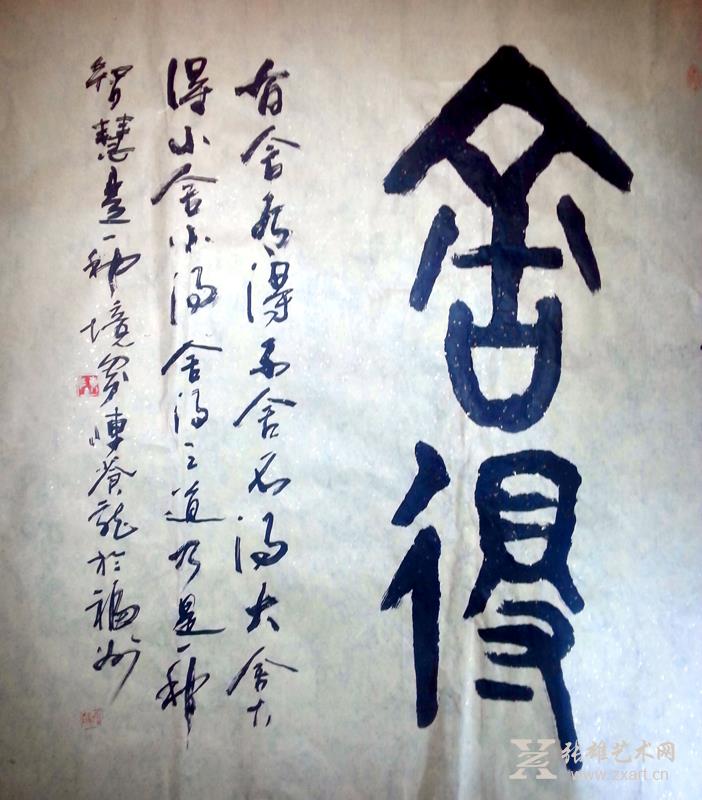 舍得
有舍有得不舍不得大舍大
得小舍小得舍得之道乃是一种
智慧是一种境界陈苍龙於福州
张雄艺术网
www.zxart.cn